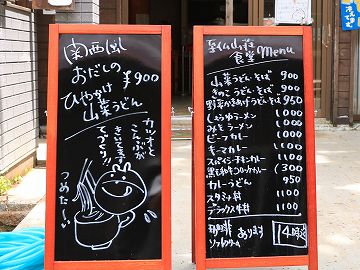 関西風
おだしの
ひやかけ
山菜うどん
¥900
カツオと
こんぶが
きいてます
てづくり!!
つめた〜い
食堂 Menu
山菜うどん・そば 900
きのこうどん・そば 900
野菜かきあげうどんそば 950
しょうゆラーメン 1000
みそラーメン 1000
ビーフカレー 1100
キーマカレー 1100
スパイシーチキンカレー 1100
黒毛和牛コロッケカレー 1300
カレーうどん 950
スタミナ丼 1100
デラックス牛丼 1100
あります
ソフトクリーム
14時